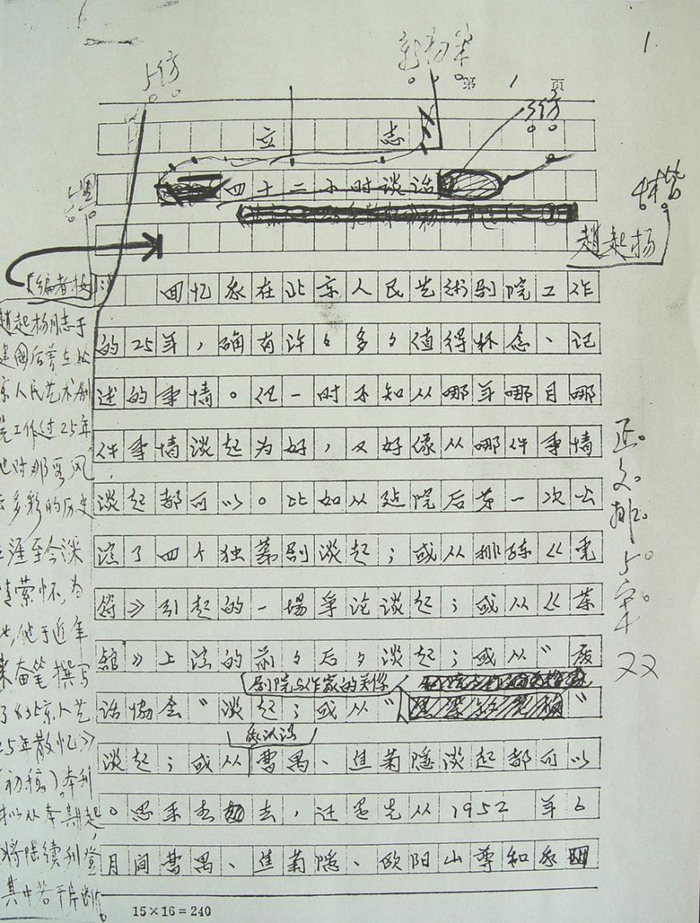 1.
5仿
第 1 页
立志
四十二小时谈话
赵起扬
回忆我在北京人民艺術剧院工作
的25年，确有许々多々值得怀念、记
述的事情。但一时不知从哪年哪月哪
件事情谈起为好，又好像从哪件事情
谈起都可以。比如从建院后第一次公
演了四个独幕剧谈起；或从排练《虎
符》引起的一場争论谈起；或从《茶
館》上演的前々后々谈起；或从“废
剧院与作家的关係
话協会”谈起；或从“”
我认识
谈起；或从曹禺、焦菊隐谈起都可以
。思来去，还是先从1952年6
月间曹禺、焦菊隐、欧阳山尊和我四
15×16=240
【编者按】：
赵起扬同志于
建国后曾在北
京人民艺术剧
院工作过25年
他对那段风
云多彩的历史
生涯至今深
情萦怀，为
此，他于近年
来奋笔撰写
了《北京人艺
25年散忆》
（初稿）。本刊
拟从本期起
将陆续刊登
其中若干片断。
正文排5宋